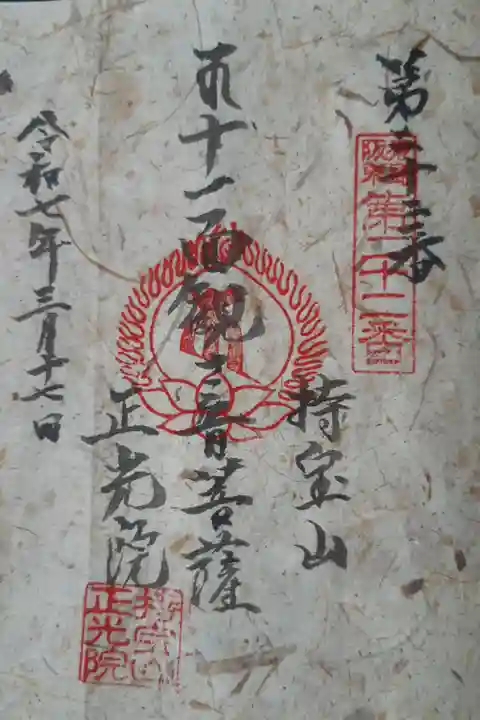 第二十二番
第二十二番
十一面観音菩薩
持宝山
正光院
令和七年三月十七日
持宝山
正光院